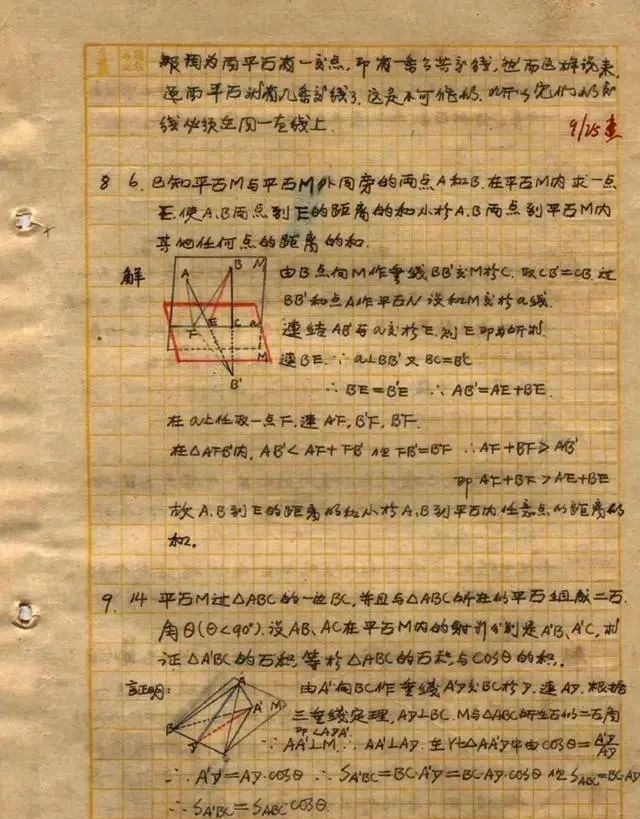 因为两平面有一交点,即有一条公共交线,然而这样说来
这两平面就有几条交线了,这是不可能的,所以它们的交
线必须在同一直线上.
9/25
8 6. 已知平面M与平面M外同旁的两点A和B.在平面M内求一点
E.使A.B两点到E的距离的和小于A.B两点到平面M内
其他任何点的距离的和.
解 由B点向M作垂线BB'交M于C.取CB'=CB.过
BB'和点A作平面N设和M交于a线.
连结AB'与a交于E.则E即为所求
连BE.∵a⊥BB'又BC=B'C
∴BE=B'E ∴AB'=AE+BE.
A B N F E C a M B'
在a上任取一点F.连AF,B'F,BF.
在△AFB'内,AB'<AF+FB' 但FB'=BF ∴AF+BF>AB'
即AF+BF>AE+BE
故A.B到E的距离的和小于A.B到平面内任意点的距离的
和.
9. 14 平面M过△ABC的一边BC,并且与△ABC所在的平面组成二面
角θ(θ<90°).设AB、AC在平面M内的射影分别是A'B、A'C,求
证△A'BC的面积等于△ABC的面积与COSθ的积.
证明: 由A'向BC作垂线A'D交BC于D.连AD.根据
三垂线定理,AD⊥BC.M与△ABC所在面的二面角
即∠ADA'
∵AA'⊥M ∴AA'⊥A'D.在Rt△AA'D中由cosθ=A'D/AD
A A' M B
∴A'D=AD·cosθ ∴S A'BC=BC·A'D=BC·AD·cosθ 但S ABC=BC·AD
∴S A'BC=S ABC·COSθ.